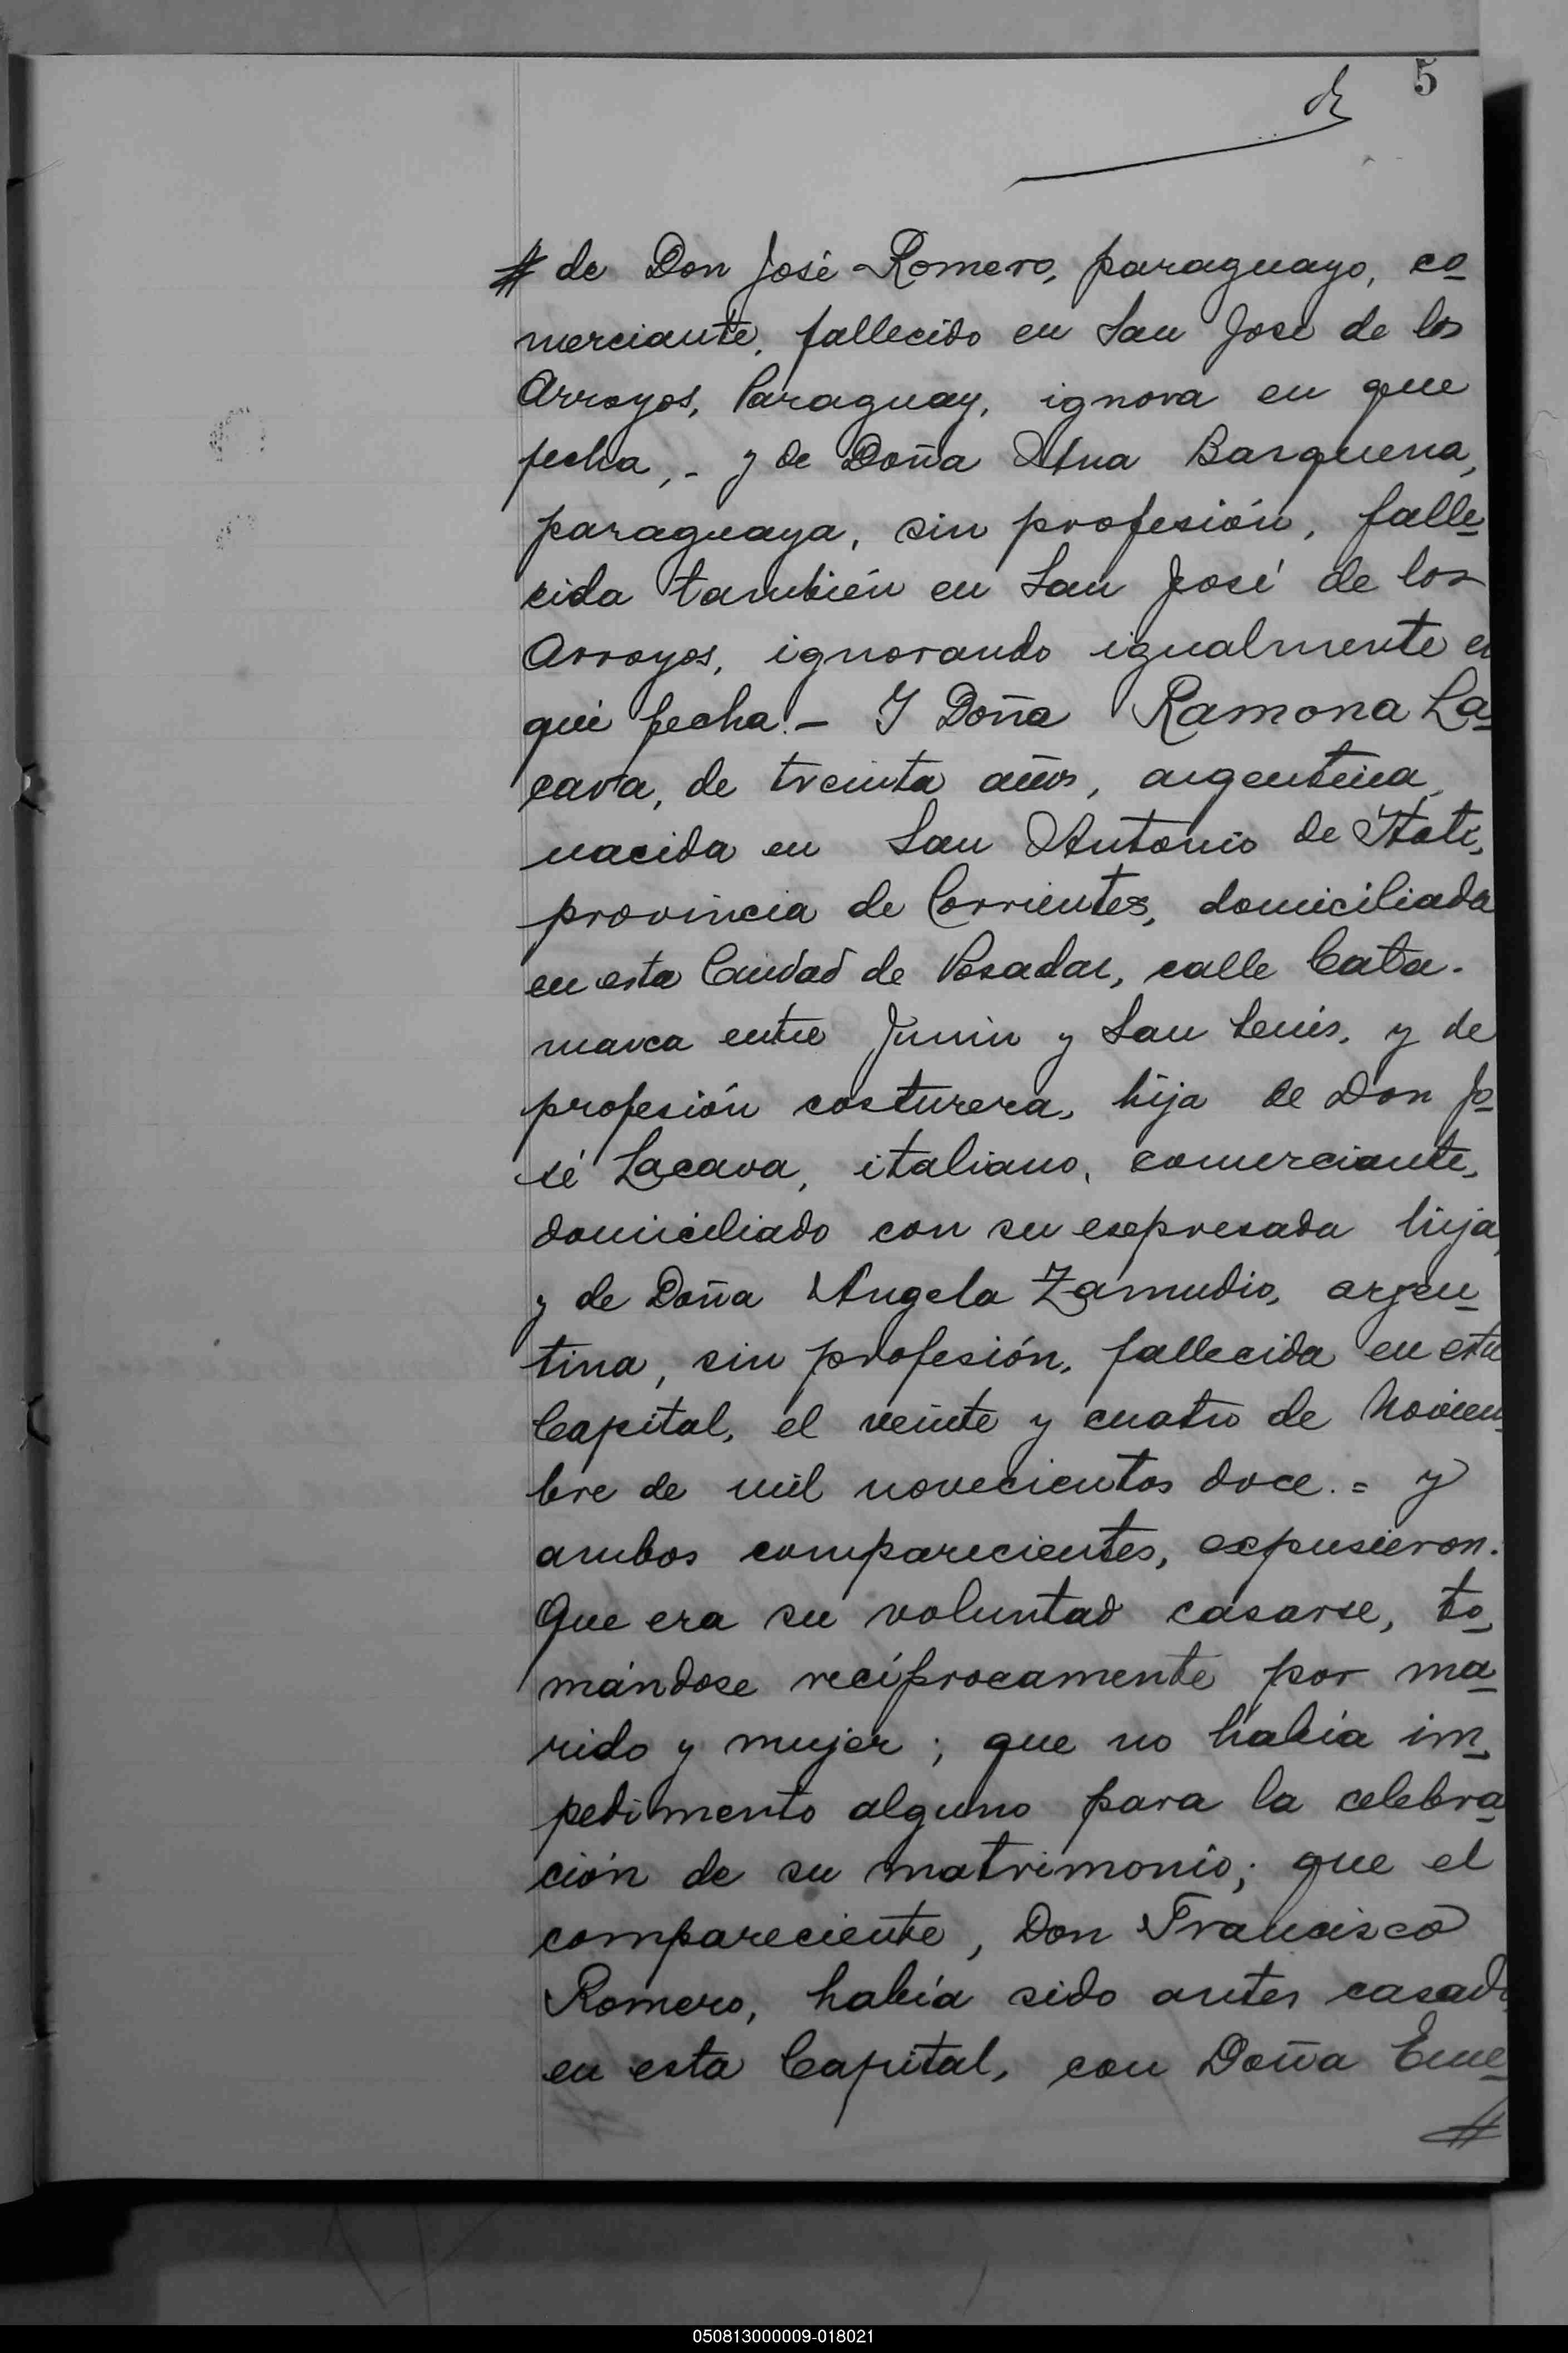 5
# de Don José Romero, paraguayo, co
merciante, fallecido en San José de los
Arroyos, Paraguay, ignora en que
fecha,- y de Doña Ana Barquena,
paraguaya, sin profesión, falle
cida también en San José de los
Arroyos, ignorando igualmente en
qué fecha.- Y Doña Ramona La
cava, de treinta años, argentina,
nacida en San Antonio de Itatí,
provincia de Corrientes, domiciliada
en esta Ciudad de Posadas, calle Cata-
marca entre Junin y San Luis, y de
profesión costurera, hija de Don Jo
sé Lacava, italiano, comerciante,
domiciliado con su expresada hija,
y de Doña Angela Zamudio, argen
tina, sin profesión, fallecida en esta
Capital, el veinte y cuatro de Noviem
bre de mil novecientos doce.= y
ambos comparecientes, expusieron:
Que era su voluntad casarse, to
mándose recíprocamente por ma
rido y mujer; que no había im
pedimento alguno para la celebra
ción de su matrimonio; que el
compareciente, Don Francisco
Romero, había sido antes casado
en esta Capital, con Doña Eme
#
050813000009-018021